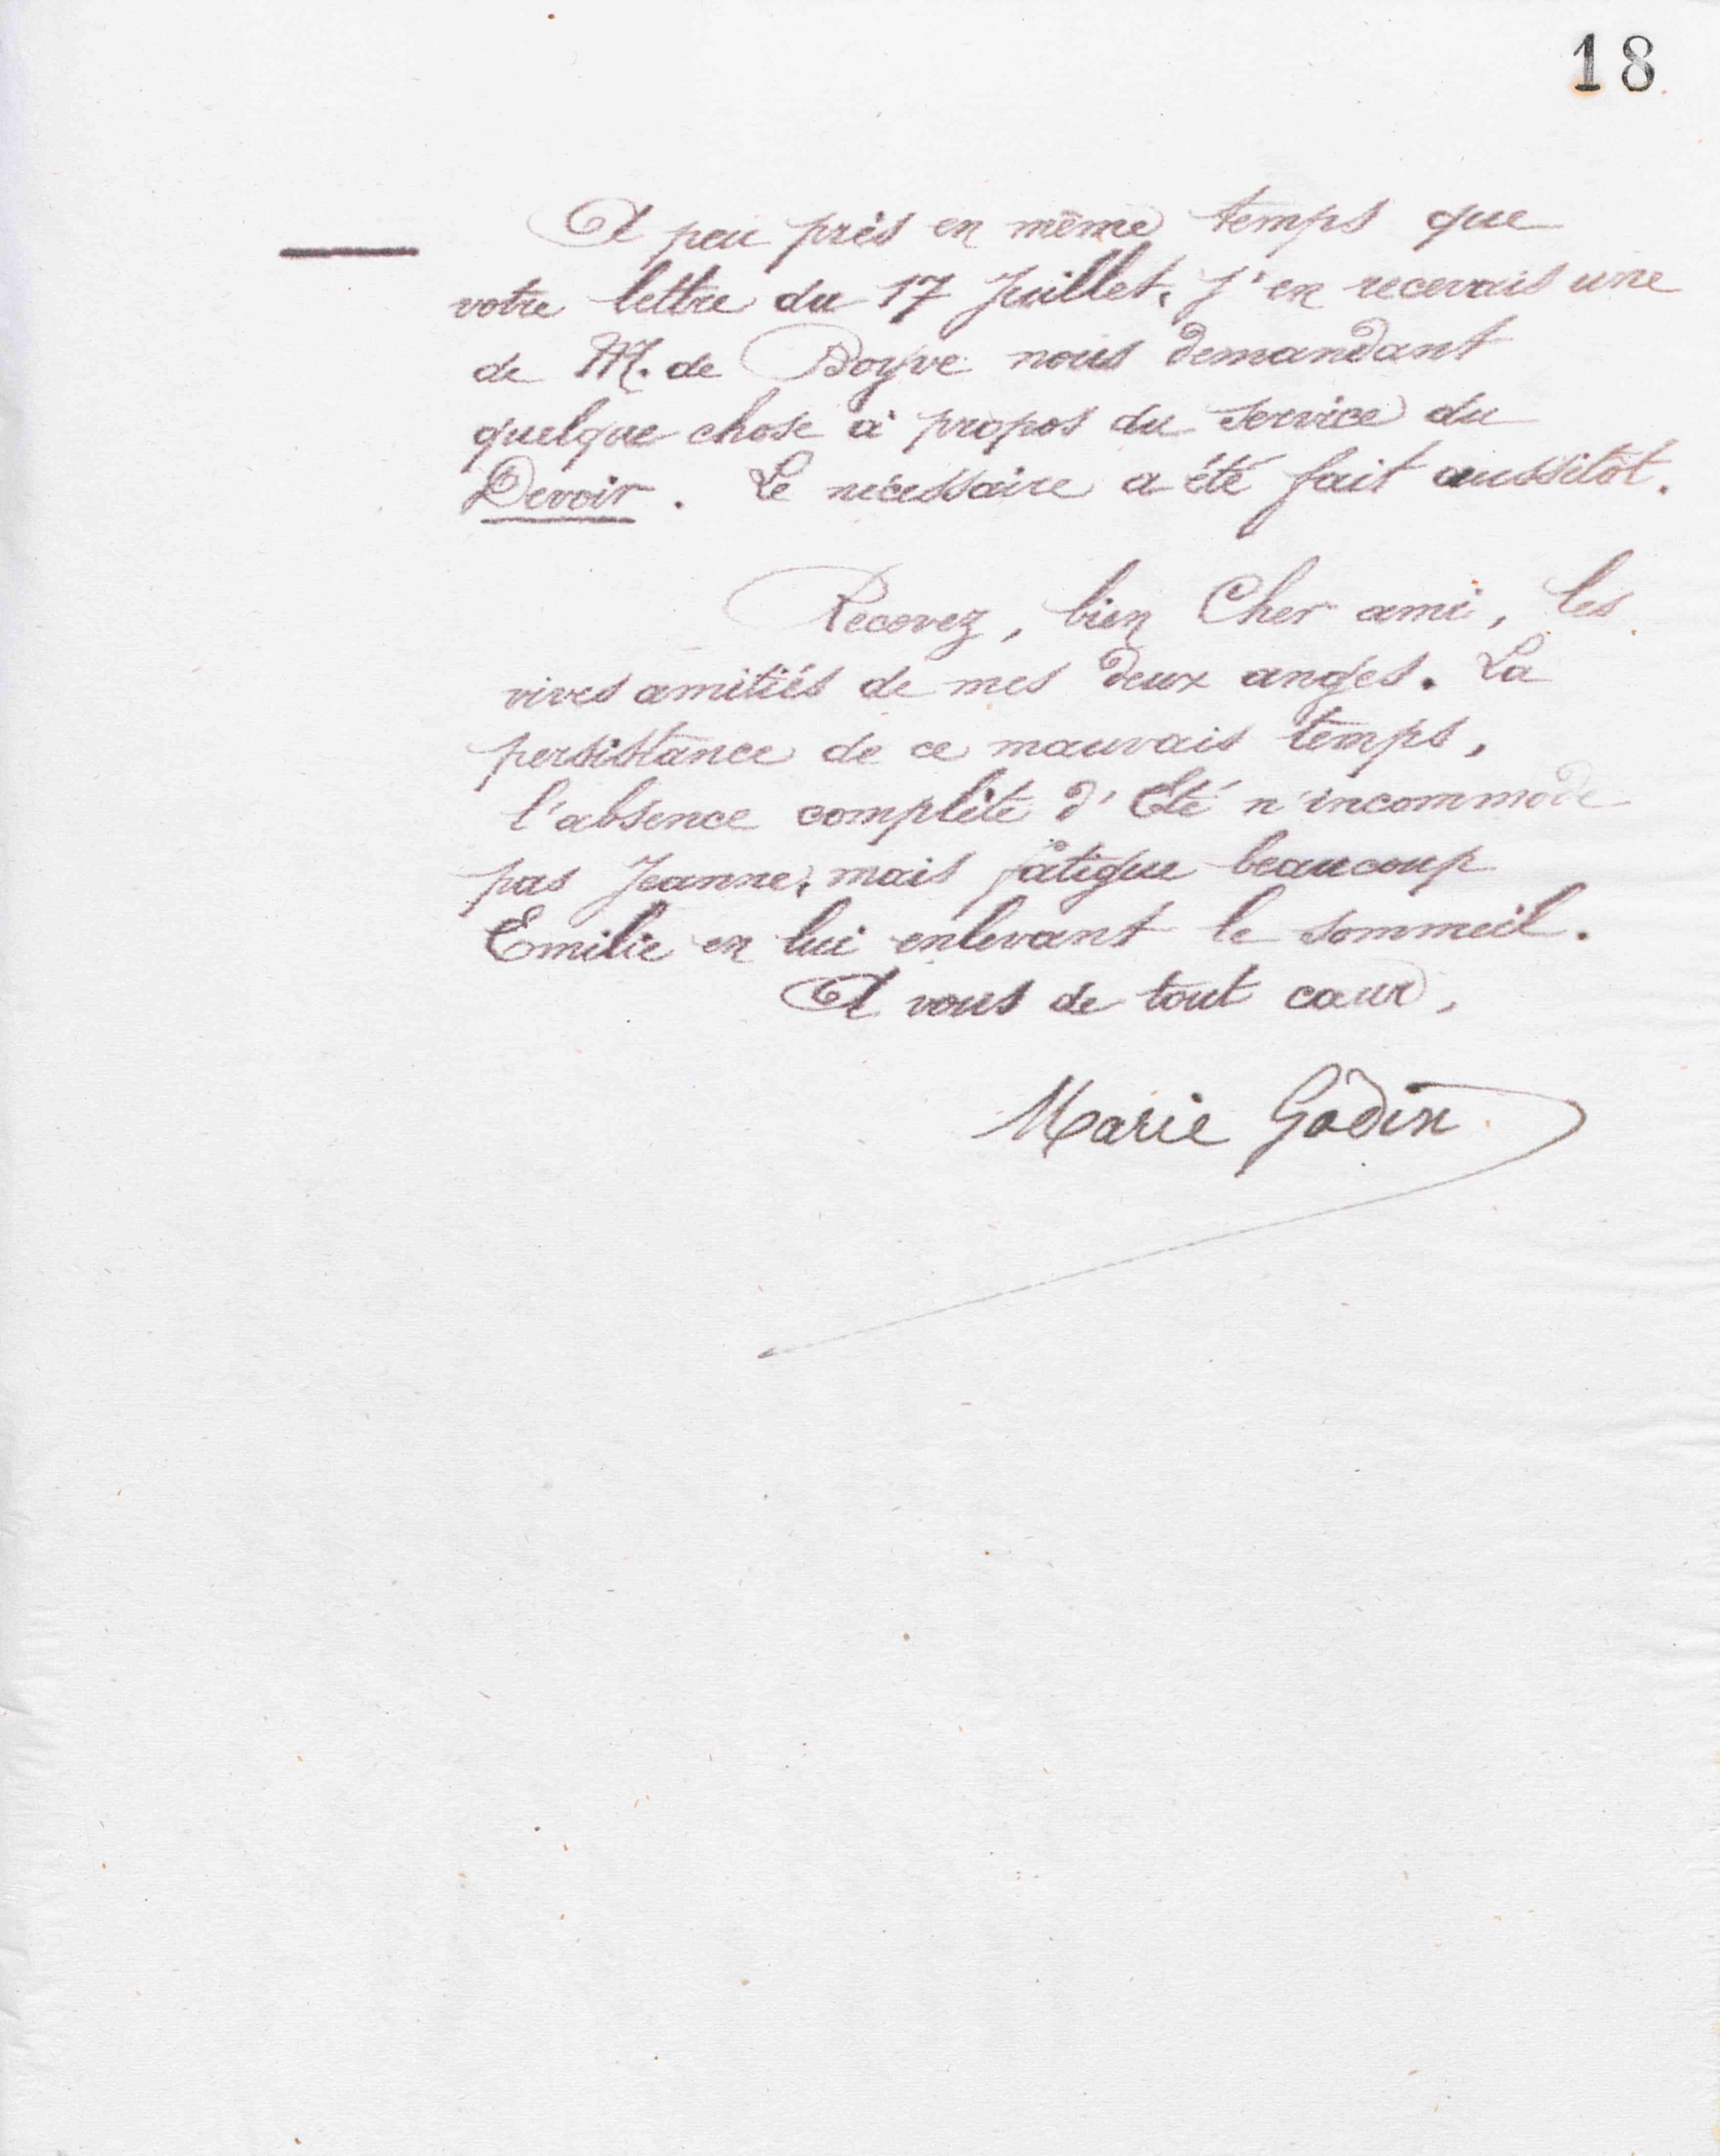 18
A peu près en même temps que
votre lettre du 17 Juillet, j'en recevais une
de M. de Boyve nous demandant
quelque chose à propos du service du
Devoir. Le nécessaire a été fait aussitôt.
Recevez, bien Cher ami, les
vives amitiés de mes deux anges. La
persistance de ce mauvais temps,
l'absence complète d'Eté n'incommode
pas Jeanne, mais fatigue beaucoup
Emilie en lui enlevant le sommeil.
A vous de tout cœur,
Marie Godin